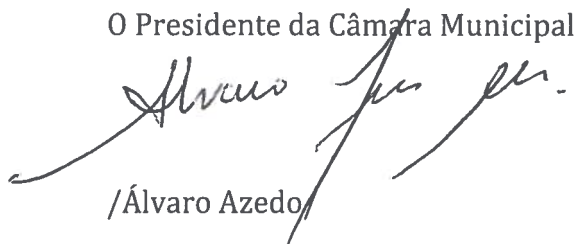 O Presidente da Câmara Municipal
Álvaro
/Álvaro Azedo/